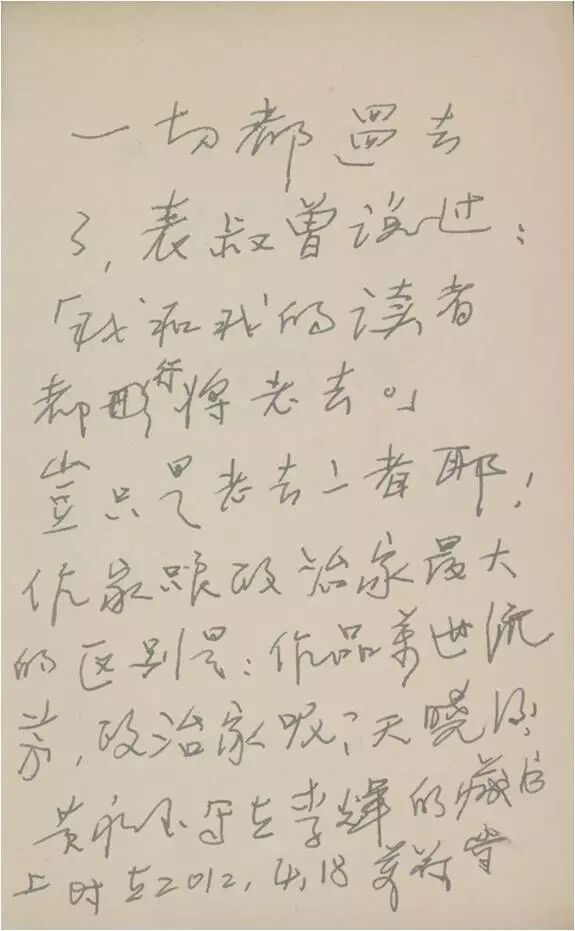 一切都過去
了,表叔曾说过:
「我和我的读者
都行将老去。」
岂只是老去二者耶!
作家跟政治家最大
的区别是:作品萬世流
芳,政治家呢?天曉得。
黄永玉写在李輝的藏书
上时在2012,4,18萬荷堂